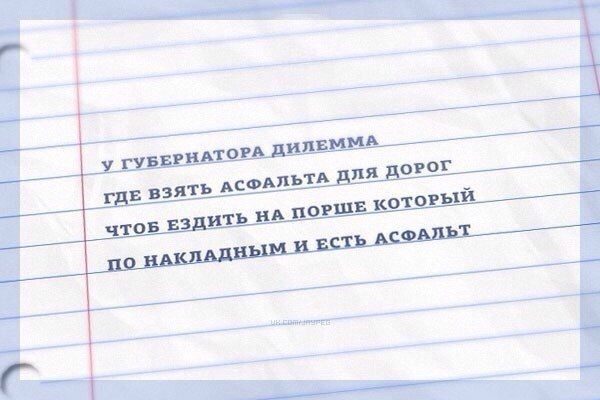 У ГУБЕРНАТОРА ДИЛЕММА
ГДЕ ВЗЯТЬ АСФАЛЬТА ДЛЯ ДОРОГ
ЧТОБ ЕЗДИТЬ НА ПОРШЕ КОТОРЫЙ
ПО НАКЛАДНЫМ И ЕСТЬ АСФАЛЬТ
VK.COM/JAYPEG